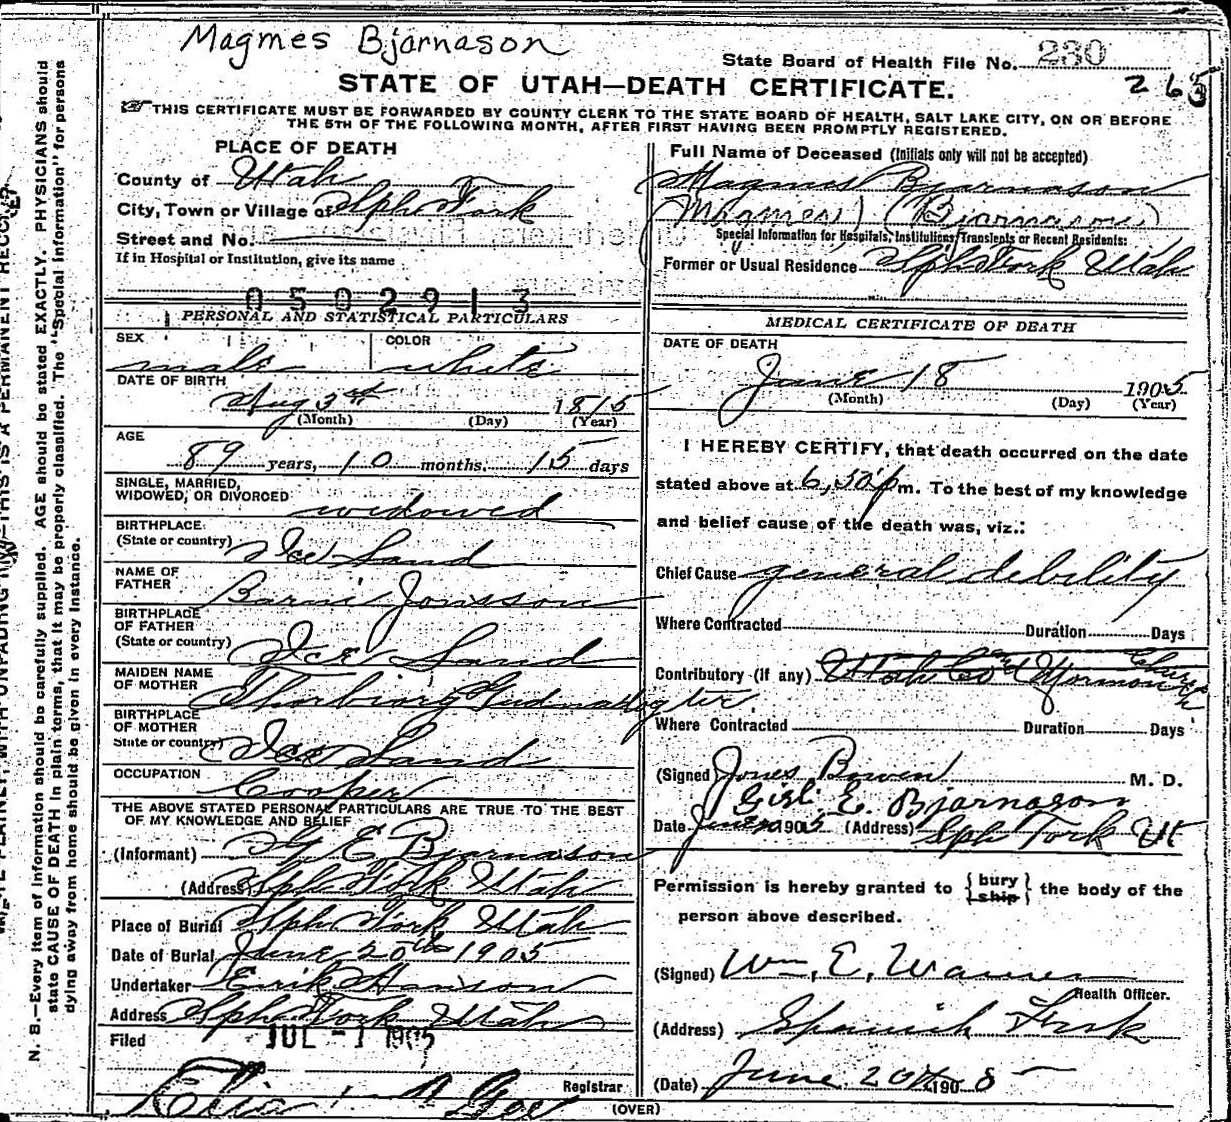 Magmes Bjarnason
State Board of Health File No. 230
265
STATE OF UTAH—DEATH CERTIFICATE.
THIS CERTIFICATE MUST BE FORWARDED BY COUNTY CLERK TO THE STATE BOARD OF HEALTH, SALT LAKE CITY, ON OR BEFORE
THE 5TH OF THE FOLLOWING MONTH, AFTER FIRST HAVING BEEN PROMPTLY REGISTERED.
PLACE OF DEATH
County of Utah
City, Town or Village of Sph Fork
Street and No.
If in Hospital or Institution, give its name
0502913
PERSONAL AND STATISTICAL PARTICULARS
SEX male COLOR white
DATE OF BIRTH
Aug 3rd 1815
(Month) (Day) (Year)
AGE
89 years, 10 months, 15 days
SINGLE, MARRIED,
WIDOWED, OR DIVORCED widowed
BIRTHPLACE
(State or country) Ice Land
NAME OF
FATHER Barni Jonsson
BIRTHPLACE
OF FATHER
(State or country) Ice Land
MAIDEN NAME
OF MOTHER Thorbiorg Gudmundogter
BIRTHPLACE
OF MOTHER
State or country) Ice Land
OCCUPATION Cooper
THE ABOVE STATED PERSONAL PARTICULARS ARE TRUE TO THE BEST
OF MY KNOWLEDGE AND BELIEF
(Informant) G E Bjarnason
(Address) Sph Fork Utah
Place of Burial Sph Fork Utah
Date of Burial June 20th 1905
Undertaker Erik Hanson
Address Sph Fork Utah
Filed JUL -1 1905
Registrar
(OVER)
Full Name of Deceased (Initials only will not be accepted)
Magmus Bjarnason
(Magmes) (Bjarnason)
Special Information for Hospitals, Institutions, Transients or Recent Residents:
Former or Usual Residence Sph Fork Utah
MEDICAL CERTIFICATE OF DEATH
DATE OF DEATH
June 18 1905
(Month) (Day) (Year)
I HEREBY CERTIFY, that death occurred on the date
stated above at 6,50 p m. To the best of my knowledge
and belief cause of the death was, viz.:
Chief Cause general debility
Where Contracted Duration Days
Contributory (if any) Utah Co Mormon Church
Where Contracted Duration Days
(Signed) Jones Bowen M. D.
Gisli E. Bjarnason
Date 1905 (Address) Sph Fork Ut
Permission is hereby granted to { bury ship } the body of the
person above described.
(Signed) Wm. E. Warner
Health Officer.
(Address) Spanish Fork
(Date) June 20th 1905
N. B.—Every item of information should be carefully supplied. AGE should be stated EXACTLY. PHYSICIANS should
state CAUSE OF DEATH in plain terms, that it may be properly classified. The "Special Information" for persons
dying away from home should be given in every instance.